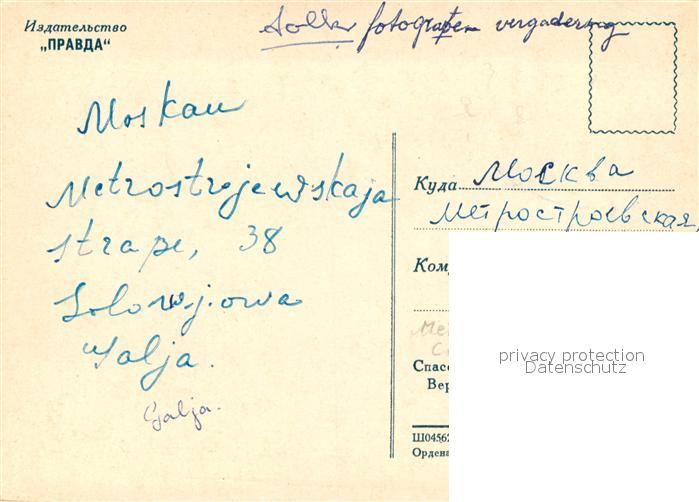 Издательство
„ПРАВДА“
fotografen vergadering
Moskau
Metrostrojewskaja
straße, 38
Solowjowa
Galja.
Galja.
Куда Москва
Метростроевская,
Ком
Спас
Вер
Ш0456
Ордена
privacy protection
Datenschutz